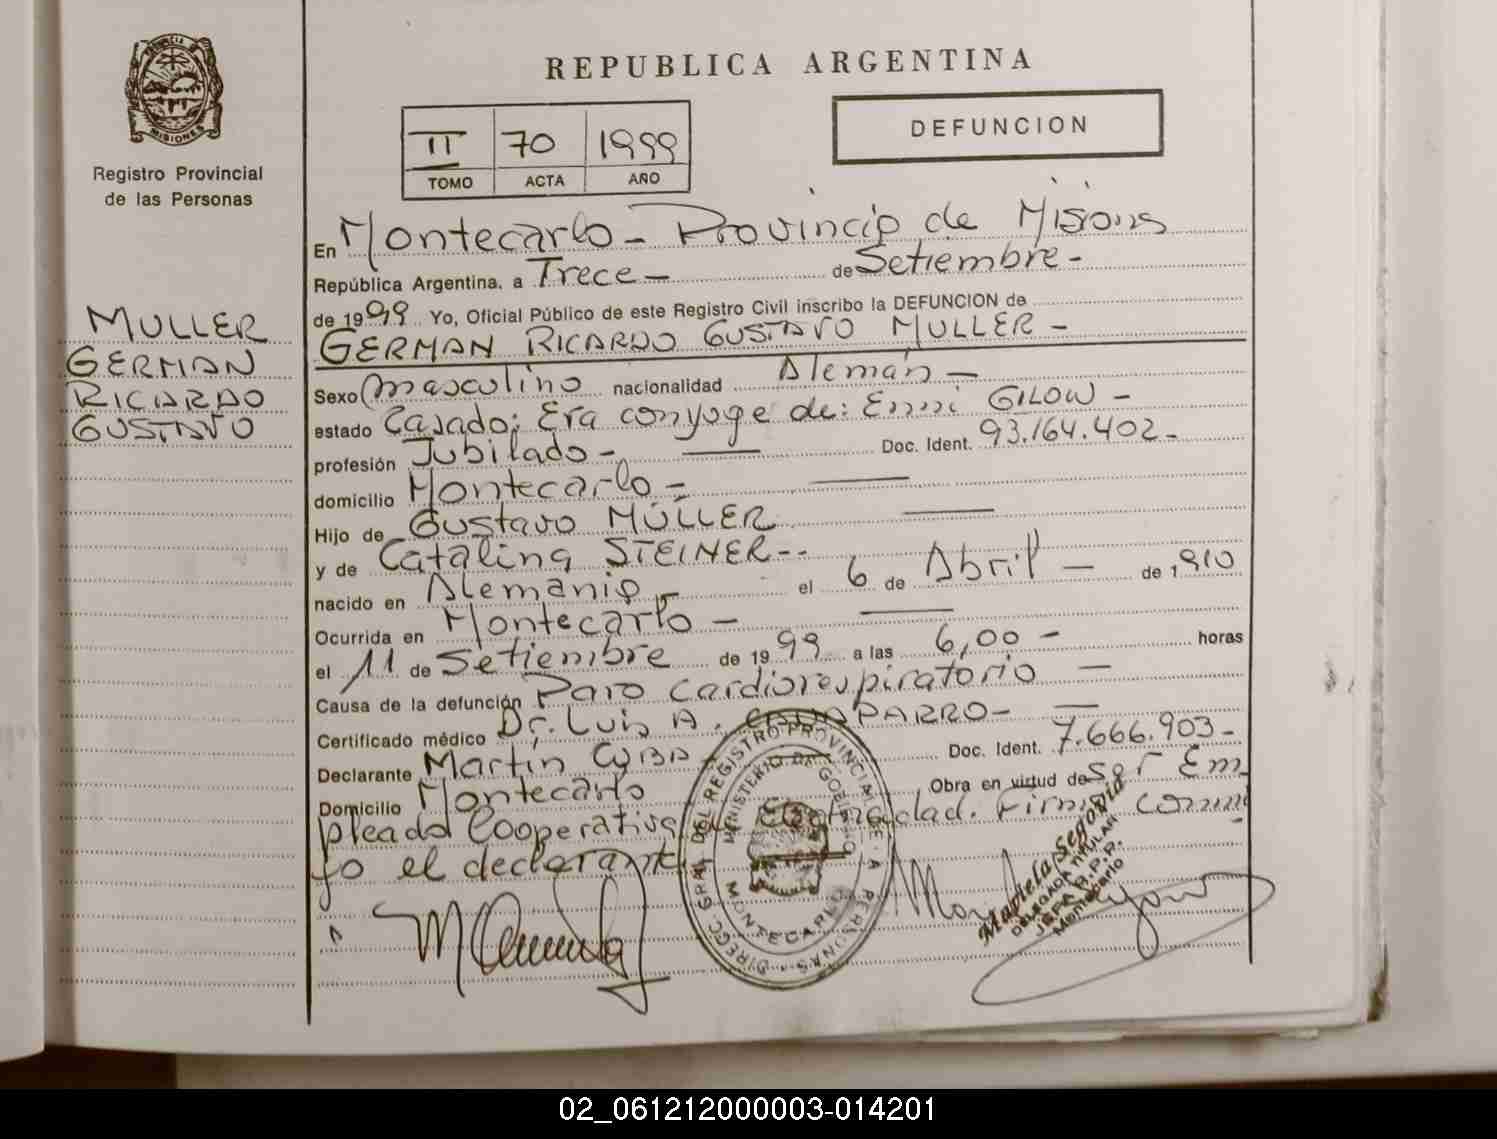 REPUBLICA ARGENTINA
PROVINCIA DE MISIONES
Registro Provincial
de las Personas
II 70 1999
TOMO ACTA AÑO
DEFUNCION
MULLER
GERMAN
RICARDO
GUSTAVO
En Montecarlo - Provincia de Misiones
República Argentina, a Trece - de Setiembre -
de 1999 Yo, Oficial Público de este Registro Civil inscribo la DEFUNCION de
GERMAN RICARDO GUSTAVO MULLER -
Sexo Masculino nacionalidad Alemán -
estado Casado; Era conyuge de: Emmi GILOW -
profesión Jubilado - Doc. Ident. 93.164.402 -
domicilio Montecarlo -
Hijo de Gustavo MÜLLER
y de Catalina STEINER --
nacido en Alemania - el 6 de Abril - de 1910
Ocurrida en Montecarlo -
el 11 de Setiembre de 1999 a las 6,00 - horas
Causa de la defunción Paro cardiorespiratorio -
Certificado médico Dr. Luis A. -
Declarante Martín Doc. Ident. 7.666.903 -
Domicilio Montecarlo Obra en virtud de ser Em
pleado Cooperativa de Electricidad. Firma conmi
go el declarante
DIREGC. GRAL DEL REGISTRO PROVINCIAL DE A PERSONAS
MINISTERIO DE GOBIERNO
MONTECARLO
Mariela Segovia
DELEGADA TITULAR
Montecarlo
02_061212000003-014201